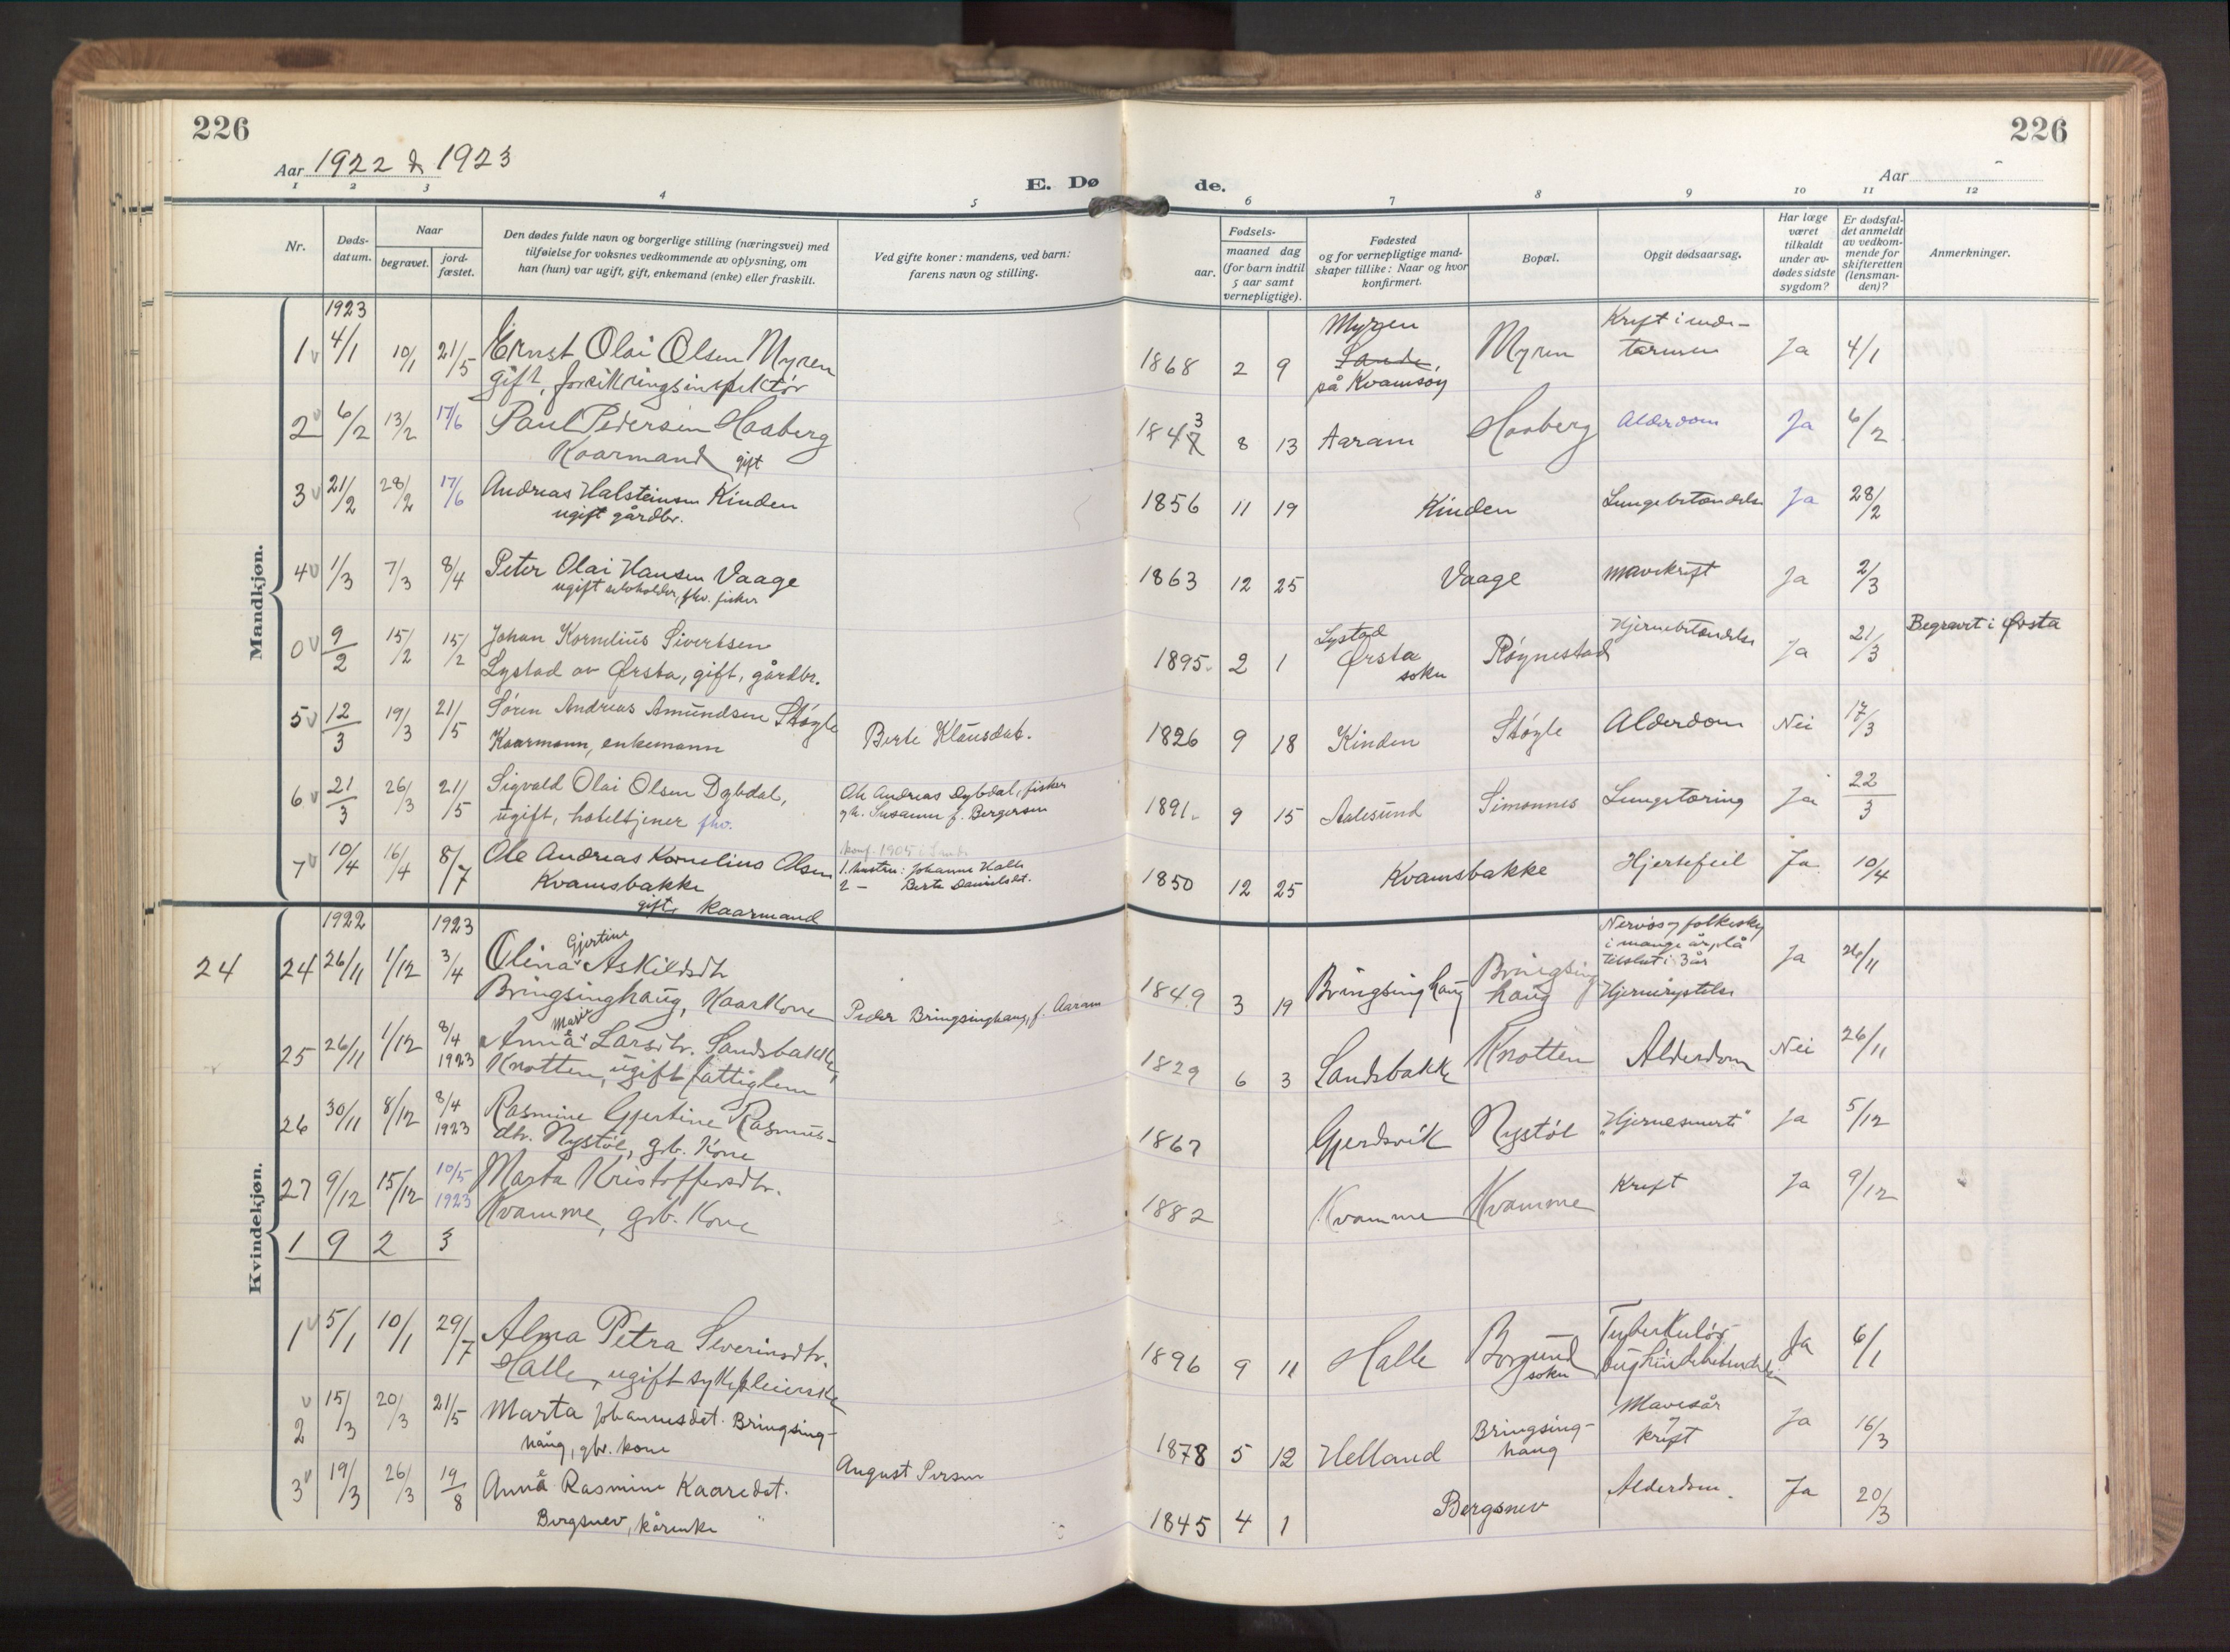 226
226
Aar 1922 & 1923
E. Dø
de.
Aar
1 2 3 4 5 6 7 8 9 10 11 12
Nr.
Døds-
datum.
Naar
begravet.
jord-
fæstet.
Den dødes fulde navn og borgerlige stilling (næringsvei) med
tilføielse for voksnes vedkommende av oplysning, om
han (hun) var ugift, gift, enkemand (enke) eller fraskilt.
Ved gifte koner: mandens, ved barn:
farens navn og stilling.
Fødsels-
aar.
maaned dag
(for barn indtil
5 aar samt
vernepligtige).
Fødested
og for vernepligtige mand-
skaper tillike: Naar og hvor
konfirmert.
Bopæl.
Opgit dødsaarsag.
Har læge
været
tilkaldt
under av-
dødes sidste
sygdom?
Er dødsfal-
det anmeldt
av vedkom-
mende for
skifteretten
(lensman-
den)?
Anmerkninger.
Mandkjøn.
1923
1 4/1 10/1 21/5 Ernst Olai Olsen Myren
gift, forsikringsinspektör
1868 2 9
Myren
Sande,
på Kvamsöy
Myren
Kreft i ende-
tarmen
Ja 4/1
2 6/2 13/2 17/6 Paul Pedersen Haaberg
Kaarmand gift
1847 3 8 13 Aaram Haaberg Alderdom Ja 6/2
3 21/2 28/2 17/6 Andreas Halsteinsen Kinden
ugift gårdbr.
1856 11 19 Kinden Lungebetændelse Ja 28/2
4 1/3 7/3 8/4 Peter Olai Hansen Vaage
ugift selvholder, fhv. fisker
1863 12 25 Vaage Mavekreft Ja 2/3
0 9/2 15/2 15/2 Johan Kornelius Sivertsen
Lystad av Ørsta, gift, gårdbr.
1895 2 1
Lystad
Ørsta
sokn
Röynestad Hjernebetændelse Ja 21/3 Begravet i Ørsta
5 12/3 19/3 21/5 Sören Andreas Amundsen Stöyle
Kaarmann, enkemann
Berte Klausdat.
1826 9 18 Kinden Stöyle Alderdom Nei 17/3
6 21/3 26/3 21/5 Sigvald Olai Olsen Dybdal,
ugift, hoteltjener fhv.
Ole Andreas Dybdal, fisker
gh. Susanne f. Bergersen
konf. 1905 i Sande
1891 9 15 Aalesund Simonnes Lungetæring Ja 22/3
7 10/4 16/4 8/7 Ole Andreas Kornelius Olsen
Kvamsbakke
gift kaarmand
1. hustru: Johanne Halls
2 — Berte Danielsdt.
1850 12 25 Kvamsbakke Hjertefeil Ja 10/4
Kvindekjøn.
1922 1923
24 24 26/11 1/12 3/4 Olina Gjertine Askildsdtr
Bringsinghaug, Kaarkone
Peder Bringsinghaug, f. Aaram
1849 3 19 Bringsinghaug
Bringsing
haug
Nervös og folkesky
i mange år, lå
tilslut i 3 år
Hjernerystelse
Ja 26/11
25 26/11 1/12 8/4 1923 Anna Marie Larsdtr. Sandsbakk,
Knotten, ugift fattiglem
1829 6 3 Sandsbakk Knotten Alderdom Nei 26/11
26 30/11 8/12 8/4 1923 Rasmine Gjertine Rasmus-
dtr. Nystöl, gb. kone
1867 Gjerdsvik Nystöl "Hjernesmerte" Ja 5/12
27 9/12 15/12 10/5 1923 Marta Kristoffersdtr.
Kvamme, grb. kone
1882 Kvamme Kvamme Kreft Ja 9/12
1 9 2 3
1 5/1 10/1 29/7 Alma Petra Severinsdtr.
Halle, ugift sykepleierske
1896 9 11 Halle
Borgund
sokn
Tuberkulös
bughindebetændelse
Ja 6/1
2 15/3 20/3 21/5 Marta Johannesdat. Bringsing-
haug, gbr. kone
1878 5 12 Helland
Bringsing-
haug
Mavesår
og
kreft
Ja 16/3
August Persen
3 19/3 26/3 19/8 Anna Rasmine Kaaredat.
Bergsnev, kårenke
1845 4 1 Bergsnev Alderdom. Ja 20/3